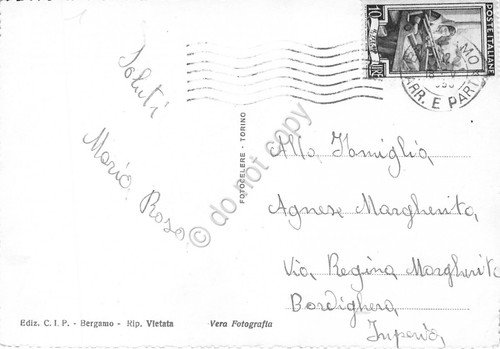 Saluti
Maria Rosa
Alla Famiglia
Agnese Margherita
Via Regina Margherita
Bordighera
Imperia
FOTOCELERE - TORINO
Ediz. C. I. P. - Bergamo - Rip. Vietata
Vera Fotografia
POSTE ITALIANE
ARR. E PART
© do not copy